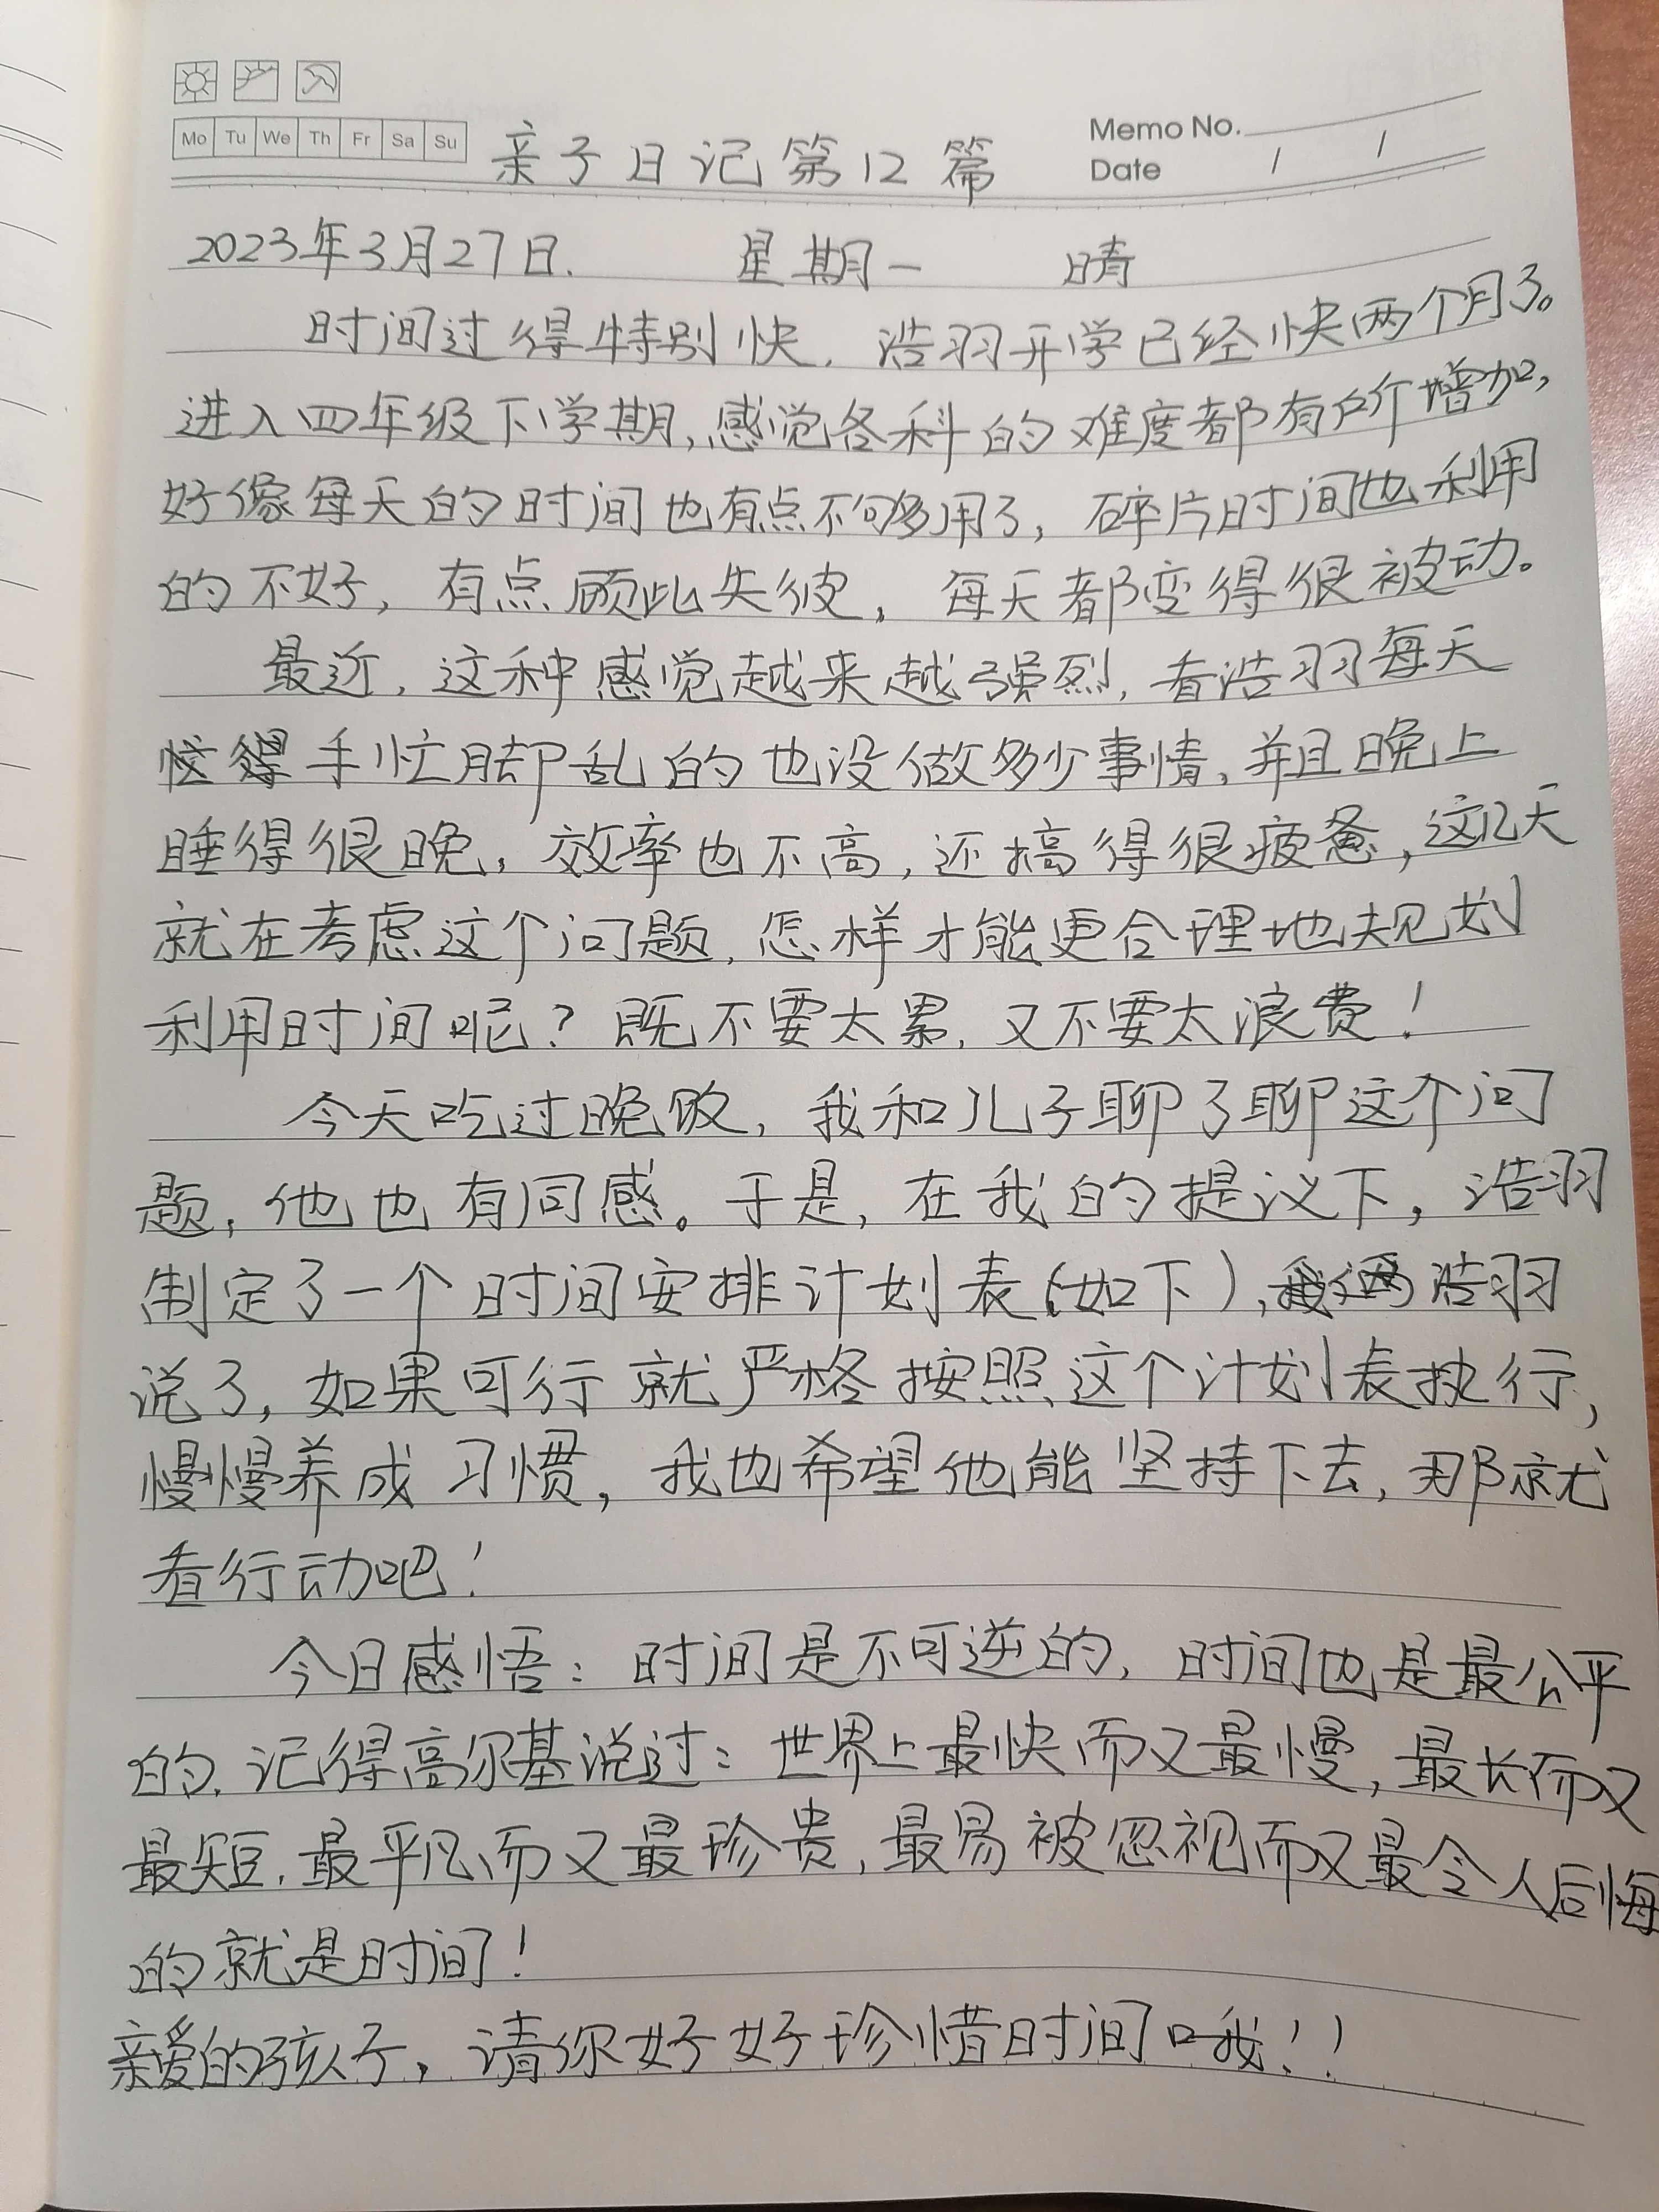 Memo No.
Mo Tu We Th Fr Sa Su
亲子日记第12篇
Date / /
2023年3月27日. 星期一 晴
时间过得特别快，浩羽开学已经快两个月了。
进入四年级下学期，感觉各科的难度都有所增加，
好像每天的时间也有点不够用了，碎片时间也利用
的不好，有点顾此失彼，每天都变得很被动。
最近，这种感觉越来越强烈，看浩羽每天
手忙脚乱的也没做多少事情，并且晚上
睡得很晚，效率也不高，还搞得很疲惫，这几天
就在考虑这个问题，怎样才能更合理地规划
利用时间呢？既不要太累，又不要太浪费！
今天吃过晚饭，我和儿子聊了聊这个问
题，他也有同感。于是，在我的提议下，浩羽
制定了一个时间安排计划表（如下），浩羽
说了，如果可行就严格按照这个计划表执行，
慢慢养成习惯，我也希望他能坚持下去，那就
看行动吧！
今日感悟：时间是不可逆的，时间也是最公平
的，记得高尔基说过：世界上最快而又最慢，最长而又
最短，最平凡而又最珍贵，最易被忽视而又最令人后悔
的就是时间！
亲爱的孩子，请你好好珍惜时间哦！！